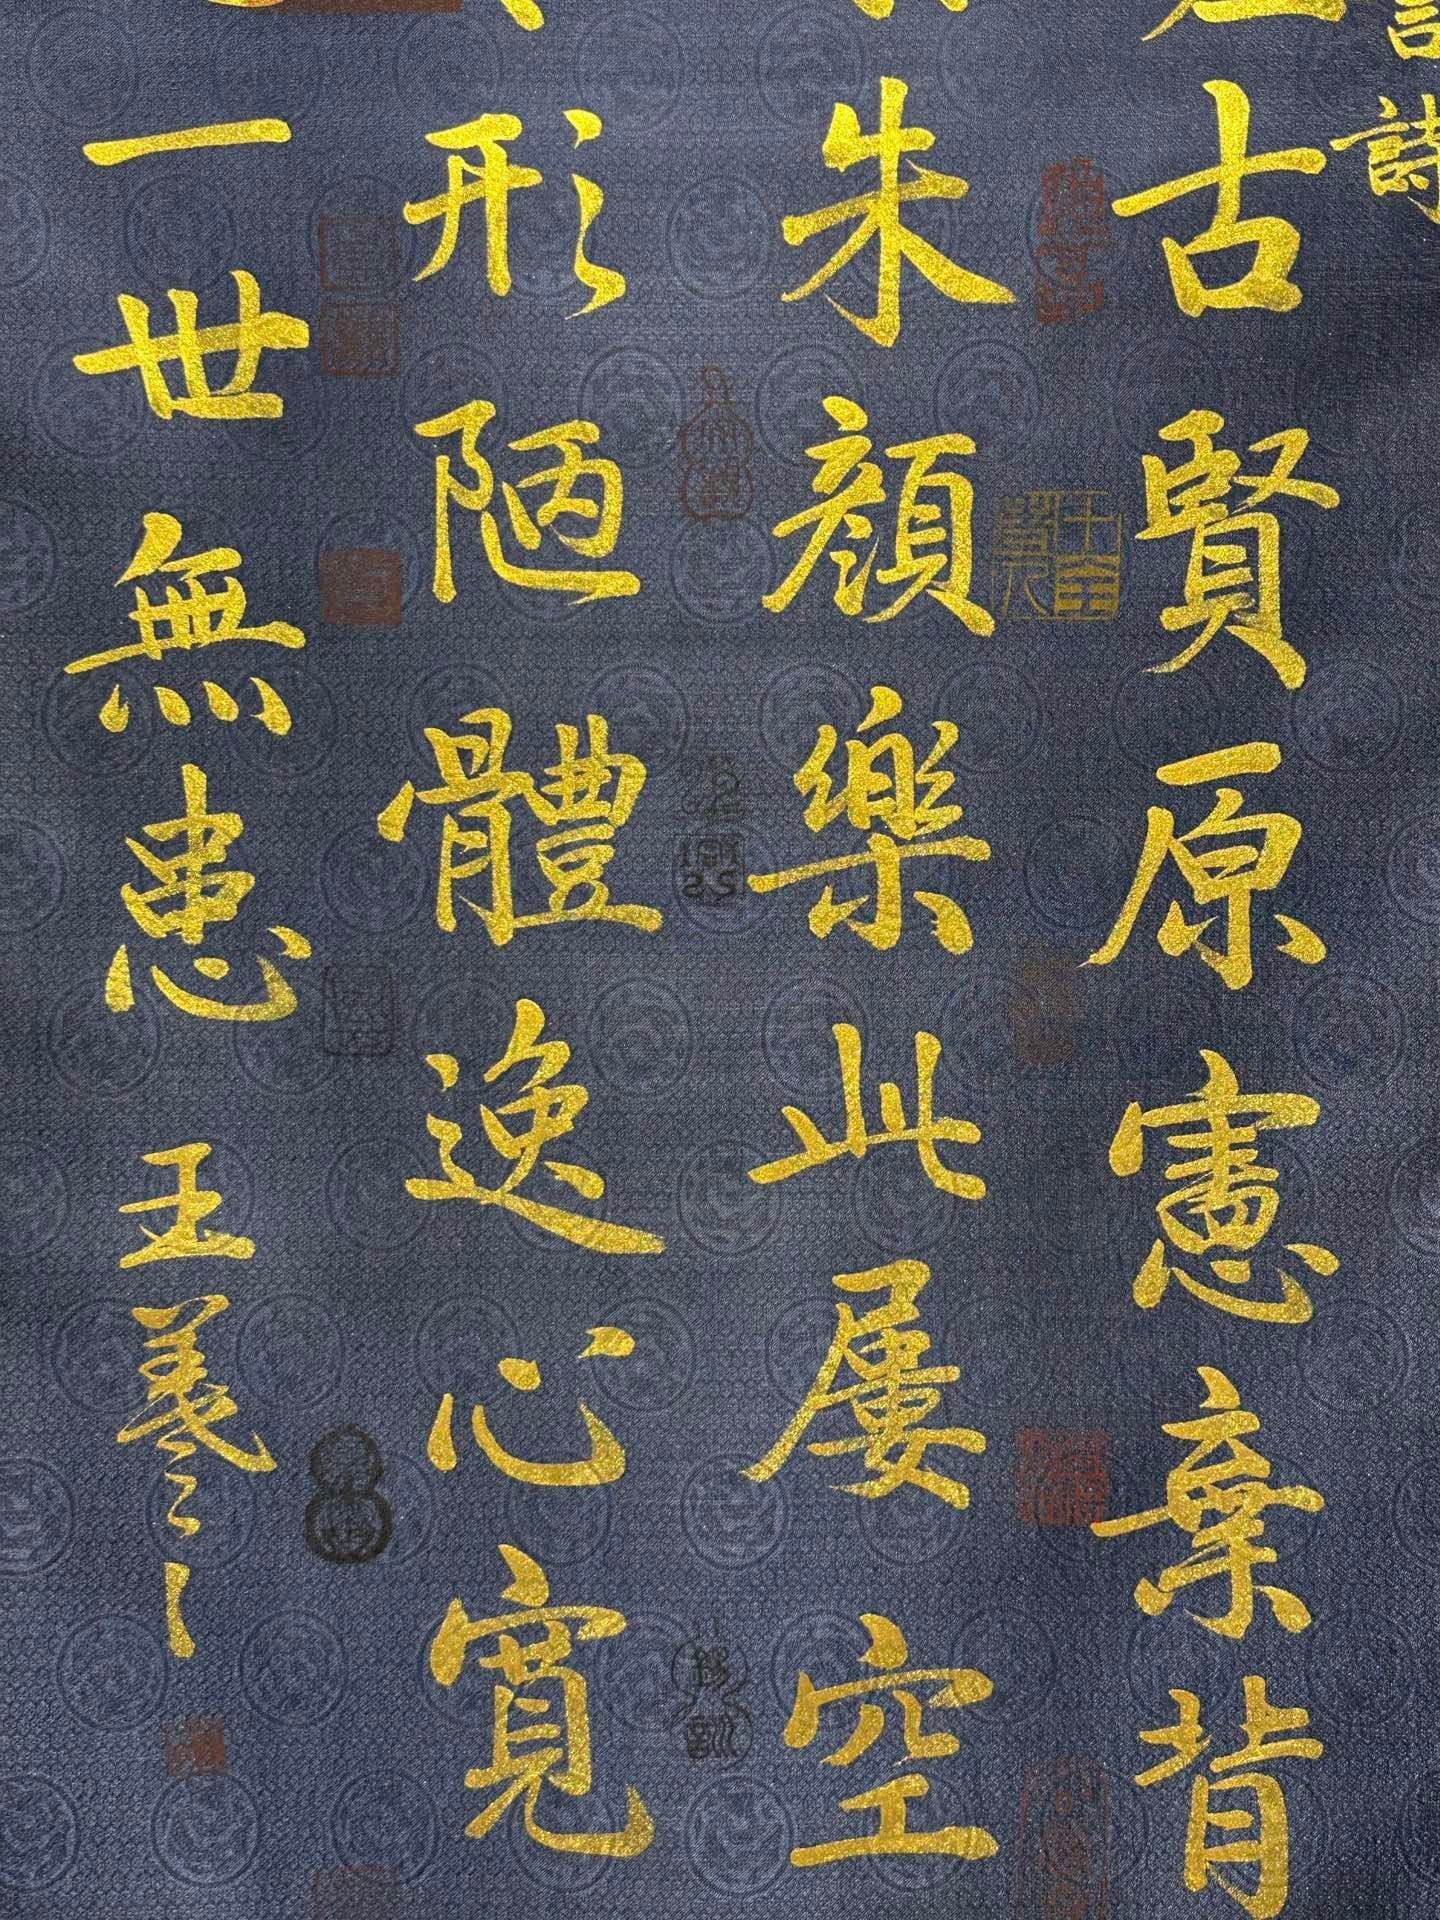 詩
古賢原憲棄背
朱顏樂此屢空
形陋體逸心寬
一世無患 王羲之